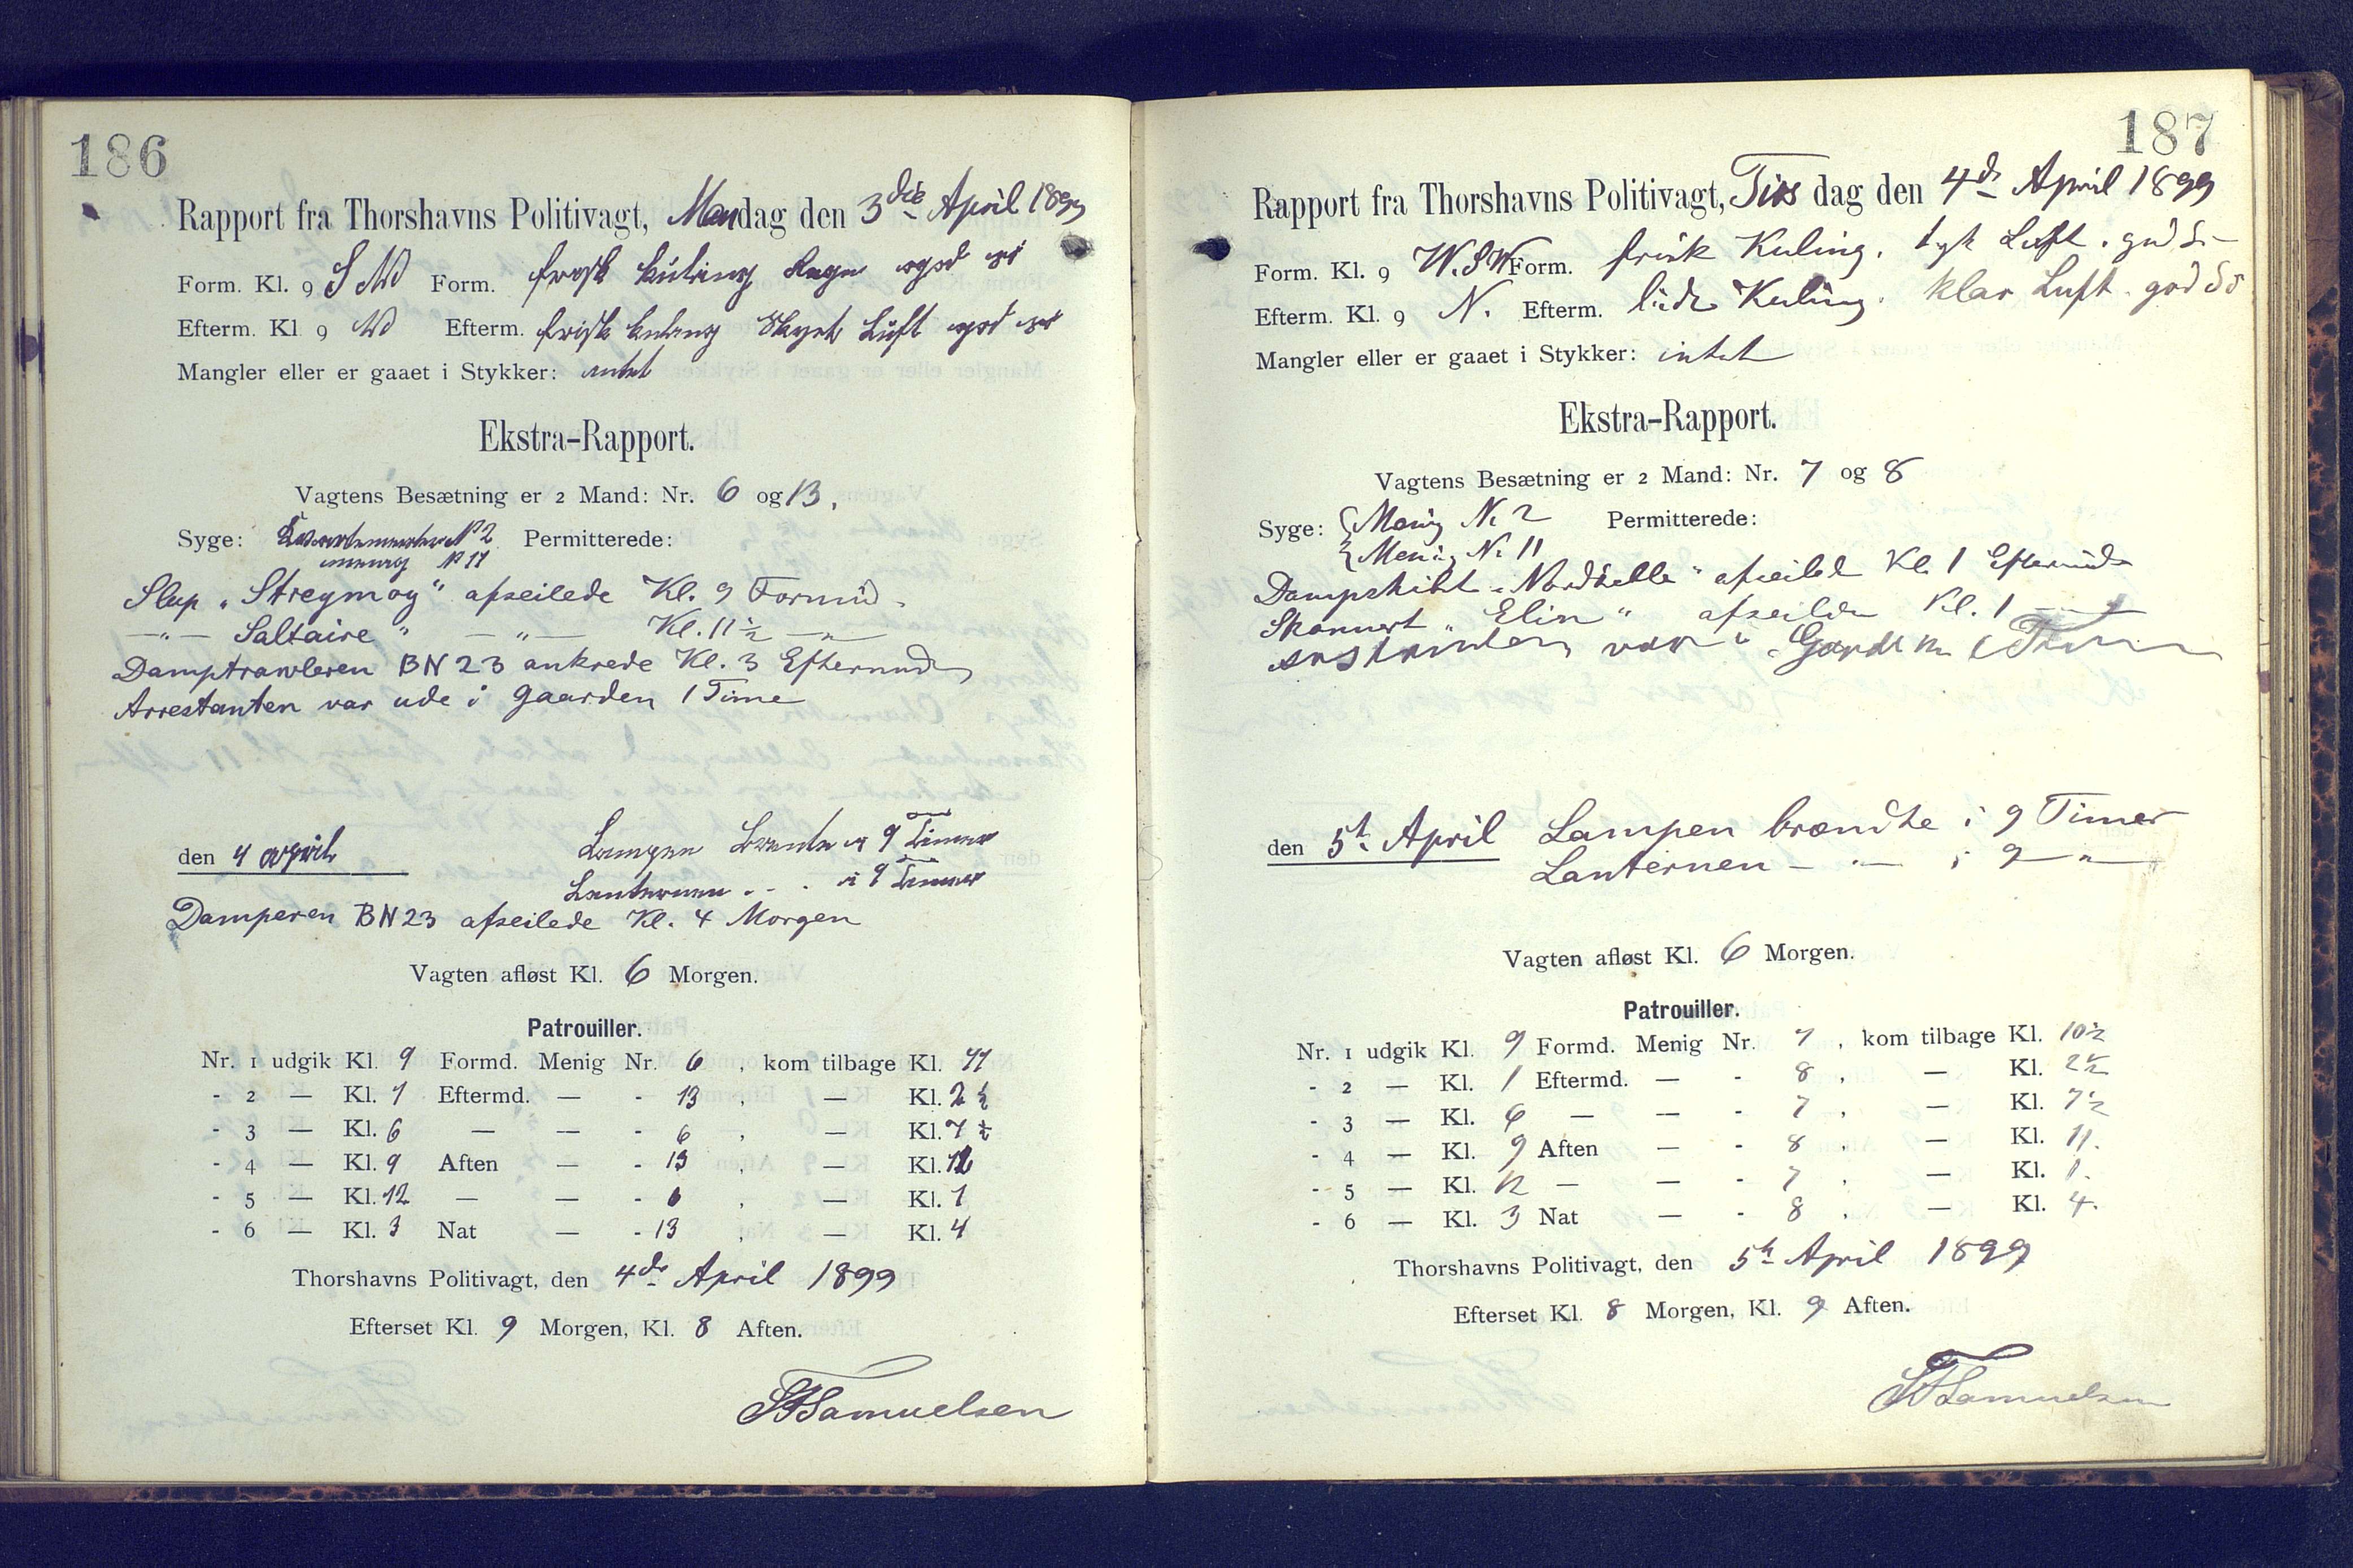 186
Rapport fra Thorshavns Politivagt, Mandag den 3die April 1899
Form. Kl. 9 S W Form. frisk kuling Regn god sø
Efterm. Kl. 9 W Efterm. frisk kuling Skyet Luft god sø
Mangler eller er gaaet i Stykker: intet
Ekstra-Rapport.
Vagtens Besætning er 2 Mand: Nr. 6 og 13.
Syge: N° 2 Permitterede:
menig N° 11
Slup „Streymoy" afseilede Kl. 9 Formid.
—"— Saltaire" —"— Kl. 11½ —"—
Damptrawleren BN 23 ankrede Kl. 3 Eftermid
Arrestanten var ude i Gaarden 1 Time
den 4 april Lampen brente i 9 Timer
Lanternen - - - i 9 Timer
Damperen BN 23 afseilede Kl. 4 Morgen
Vagten afløst Kl. 6 Morgen.
Patrouiller.
Nr. 1 udgik Kl. 9 Formd. Menig Nr. 6 , kom tilbage Kl. 11
- 2 — Kl. 1 Eftermd. — - 13 , — Kl. 2½
- 3 — Kl. 6 — — - 6 , — Kl. 7½
- 4 — Kl. 9 Aften — - 13 , — Kl.
- 5 — Kl. 12 — — - 6 , — Kl. 1
- 6 — Kl. 3 Nat — - 13 , — Kl. 4
Thorshavns Politivagt, den 4de April 1899
Efterset Kl. 9 Morgen, Kl. 8 Aften.
Samuelsen
187
Rapport fra Thorshavns Politivagt, Tirsdag den 4de April 1899
Form. Kl. 9 W.S.W Form. frisk Kuling. tyk Luft. god Sø
Efterm. Kl. 9 N. Efterm. Kuling. klar Luft. god Sø
Mangler eller er gaaet i Stykker: intet
Ekstra-Rapport.
Vagtens Besætning er 2 Mand: Nr. 7 og 8
Syge: Menig N. 2 Permitterede:
Menig N. 11
Dampskibt afseilet Kl. 1 Eftermid
Skonnert „Elin" afseilede Kl. 1 —"—
var i 1 Time
den 5te April Lampen brændte i 9 Timer
Lanternen —"— i 9 —"—
Vagten afløst Kl. 6 Morgen.
Patrouiller.
Nr. 1 udgik Kl. 9 Formd. Menig Nr. 7 , kom tilbage Kl. 10½
- 2 — Kl. 1 Eftermd. — - 8 , — Kl. 2½
- 3 — Kl. 6 — — - 7 , — Kl. 7½
- 4 — Kl. 9 Aften — - 8 , — Kl. 11.
- 5 — Kl. 12 — — - 7 , — Kl. 1.
- 6 — Kl. 3 Nat — - 8 , — Kl. 4.
Thorshavns Politivagt, den 5te April 1899
Efterset Kl. 8 Morgen, Kl. 9 Aften.
Samuelsen